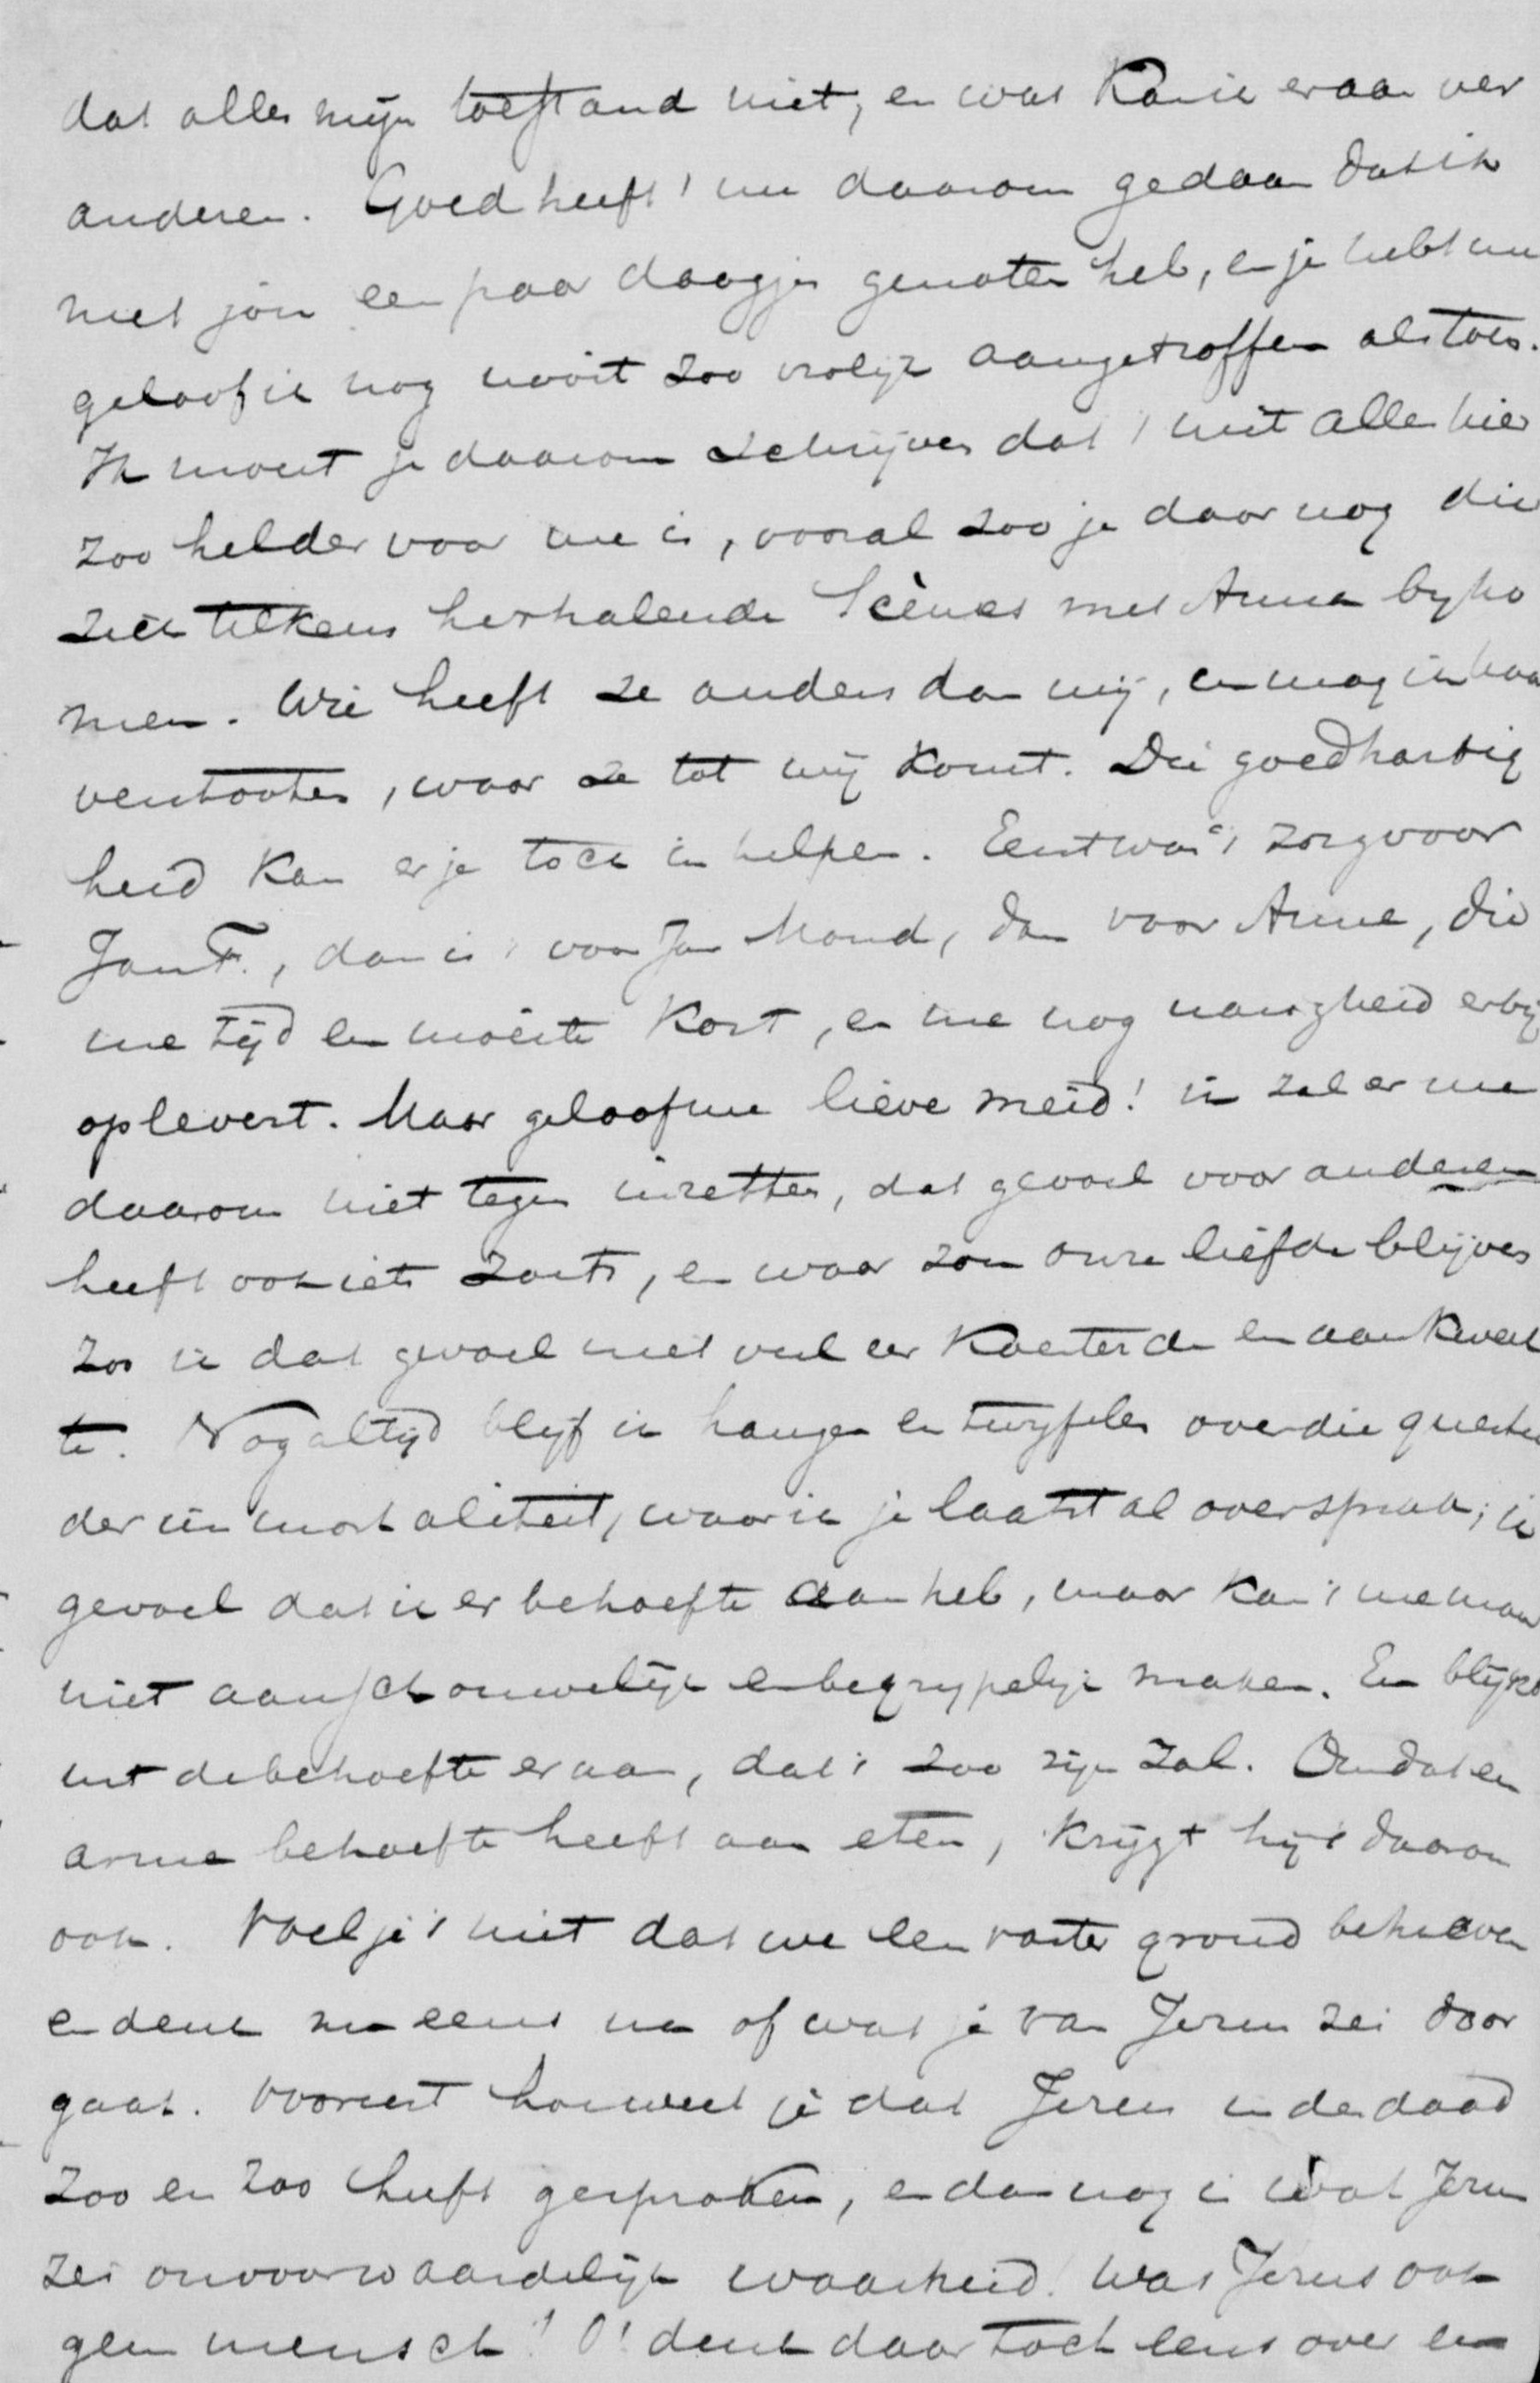 dat alles mijn toestand niet, en wat kan ik eraan ver
anderen. Goed heeft 't me daarom gedaan dat ik
met jou een paar daagjes genoten heb, en je hebt me
geloof ik nog nooit zoo vrolijk aangetroffen als toen.
Ik moest je daarom schrijven dat 't niet alles hier
zoo helder voor me is, vooral zoo je daar nog die
zich telkens herhalende Scènes met Anna byko
men. Wie heeft ze anders dan mij, en mag ik haar
verstooten, waar ze tot mij komt. Die goedhartig
heid kan er je toch in helpen. Eerst was 't zorg voor
Jan F., dan is 't voor Jan Mond, dan voor Anna, die
me tijd en moeite kost, en me nog narigheid erbij
oplevert. Maar geloof me lieve meid! ik zal er me
daarom niet tegen inzetten, dat gevoel voor anderen
heeft ook iets zoets, en waar zou onze liefde blijven
zoo ik dat gevoel niet veel eer koesterde en aankweek
te. Nog altijd blijf ik hangen en twyfelen over die questie
der immortaliteit, waar ik je laatst al over sprak; ik
gevoel dat ik er behoefte aan heb, maar kan 't me maar
niet aanschouwelijk en begrypelijk maken. En blijkt
uit de behoefte eraan, dat 't zoo zijn zal. Omdat een
arme behoefte heeft aan eten, krijgt hij 't daarom
ook. Voel je 't niet dat we een vaster grond behoeven
en denk nu eens na of wat je van Jezus zei door
gaat. Vooreerst hoe weet je dat Jezus inderdaad
zoo en zoo heeft gesproken, en dan nog is wat Jezus
zei onvoorwaardelijk waarheid. Was Jezus ook
geen mensch! O! denk daar toch eens over en